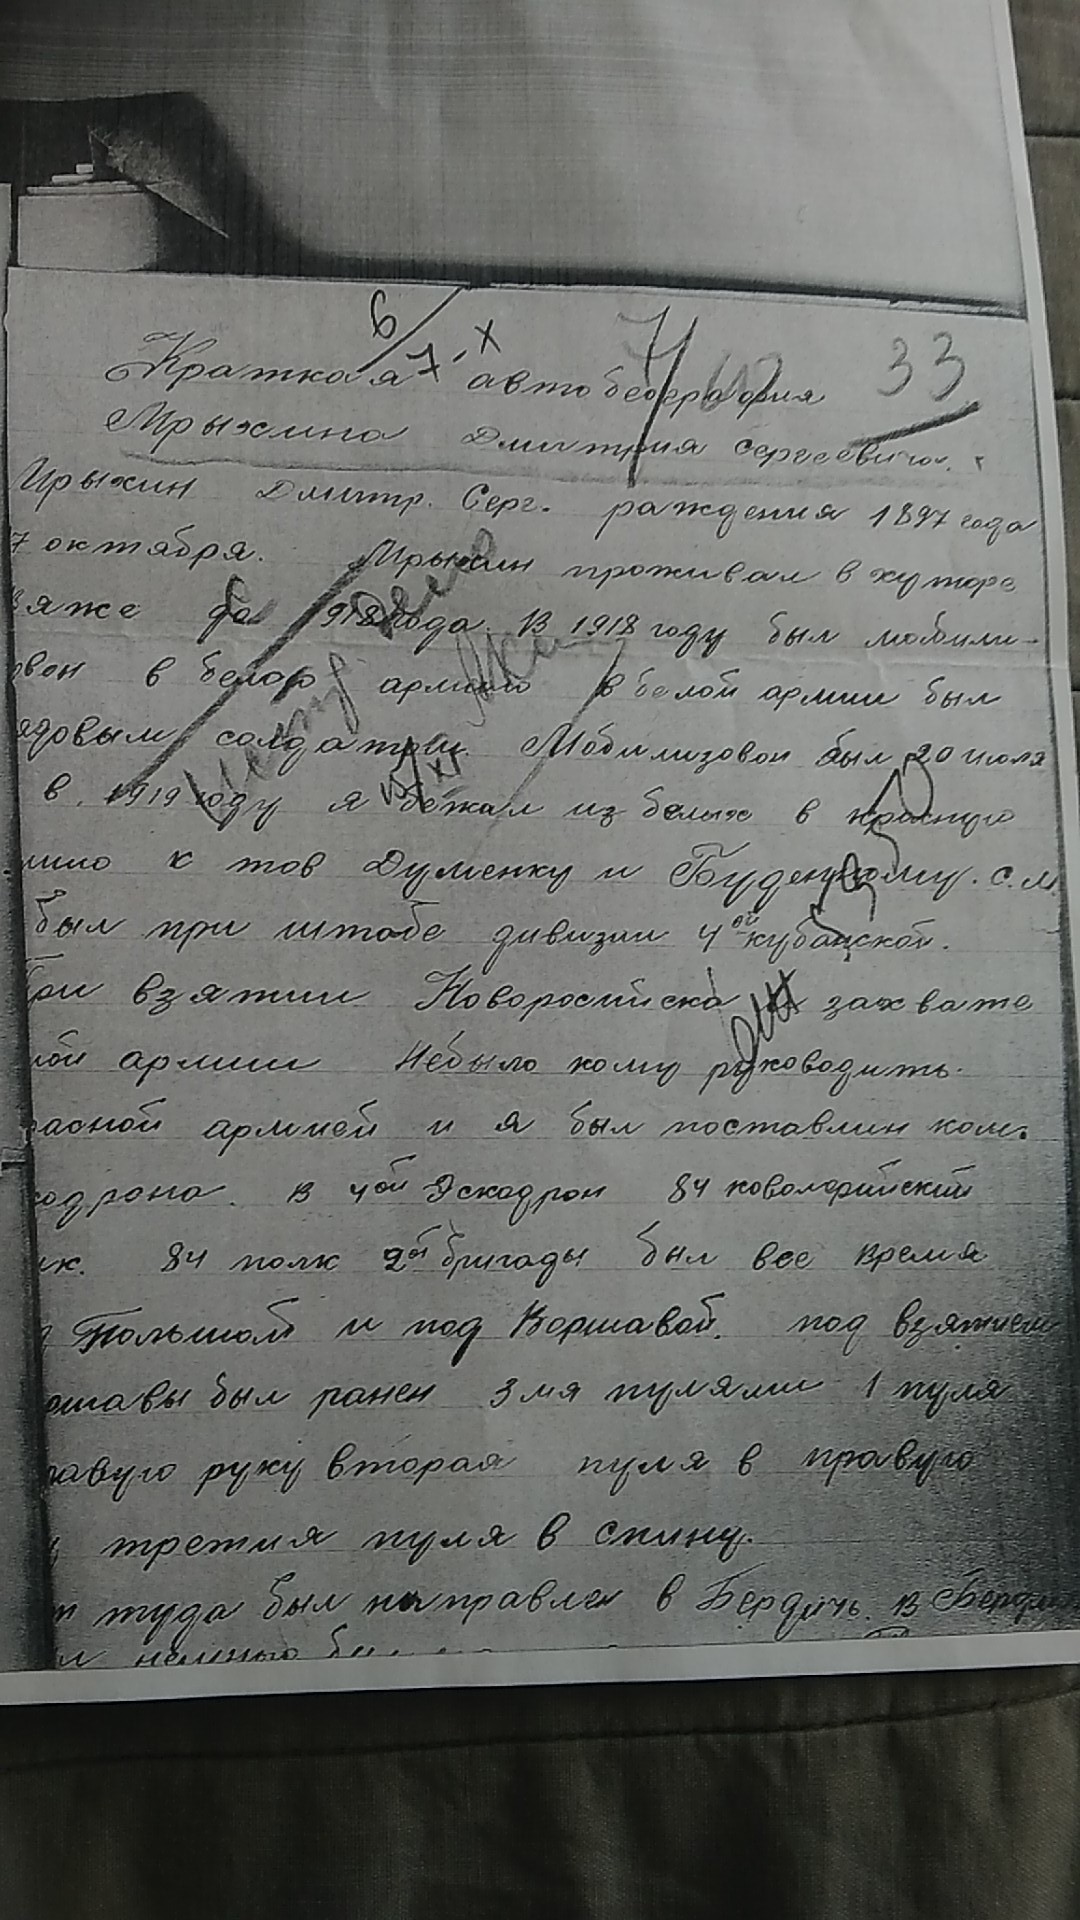 6/7-X 7/ 33
Краткая автобеография
Мрыхина Дмитрия Сергеевича.
Мрыхин Дмитр. Серг. раждения 1897 года
7 октября. Мрыхин проживал в хуторе
яже до 1918 года. В 1918 году был мобили-
зван в белою армию в белой армии был
ядовым солдатом. Мобилизован был 20 июля
в 1919 году я бежал из белых в красную
мию к тов Думенку и Буденному. С. М.
был при штабе дивизии 4ой кубанской.
При взятии Новоросийска и захвате
лой армии небыло кому руководить
расной армией и я был поставлин ком.
кодрона. В 4ой Эскадрон 84 коволерийский
лк. 84 полк 2ой бригады был все время
Польшой и под Воршавой. под взятием
ршавы был ранен 3мя пулями 1 пуля
равую руку вторая пуля в правую
третия пуля в спину.
т туда был направлен в Бердичь. В Берди
л немного